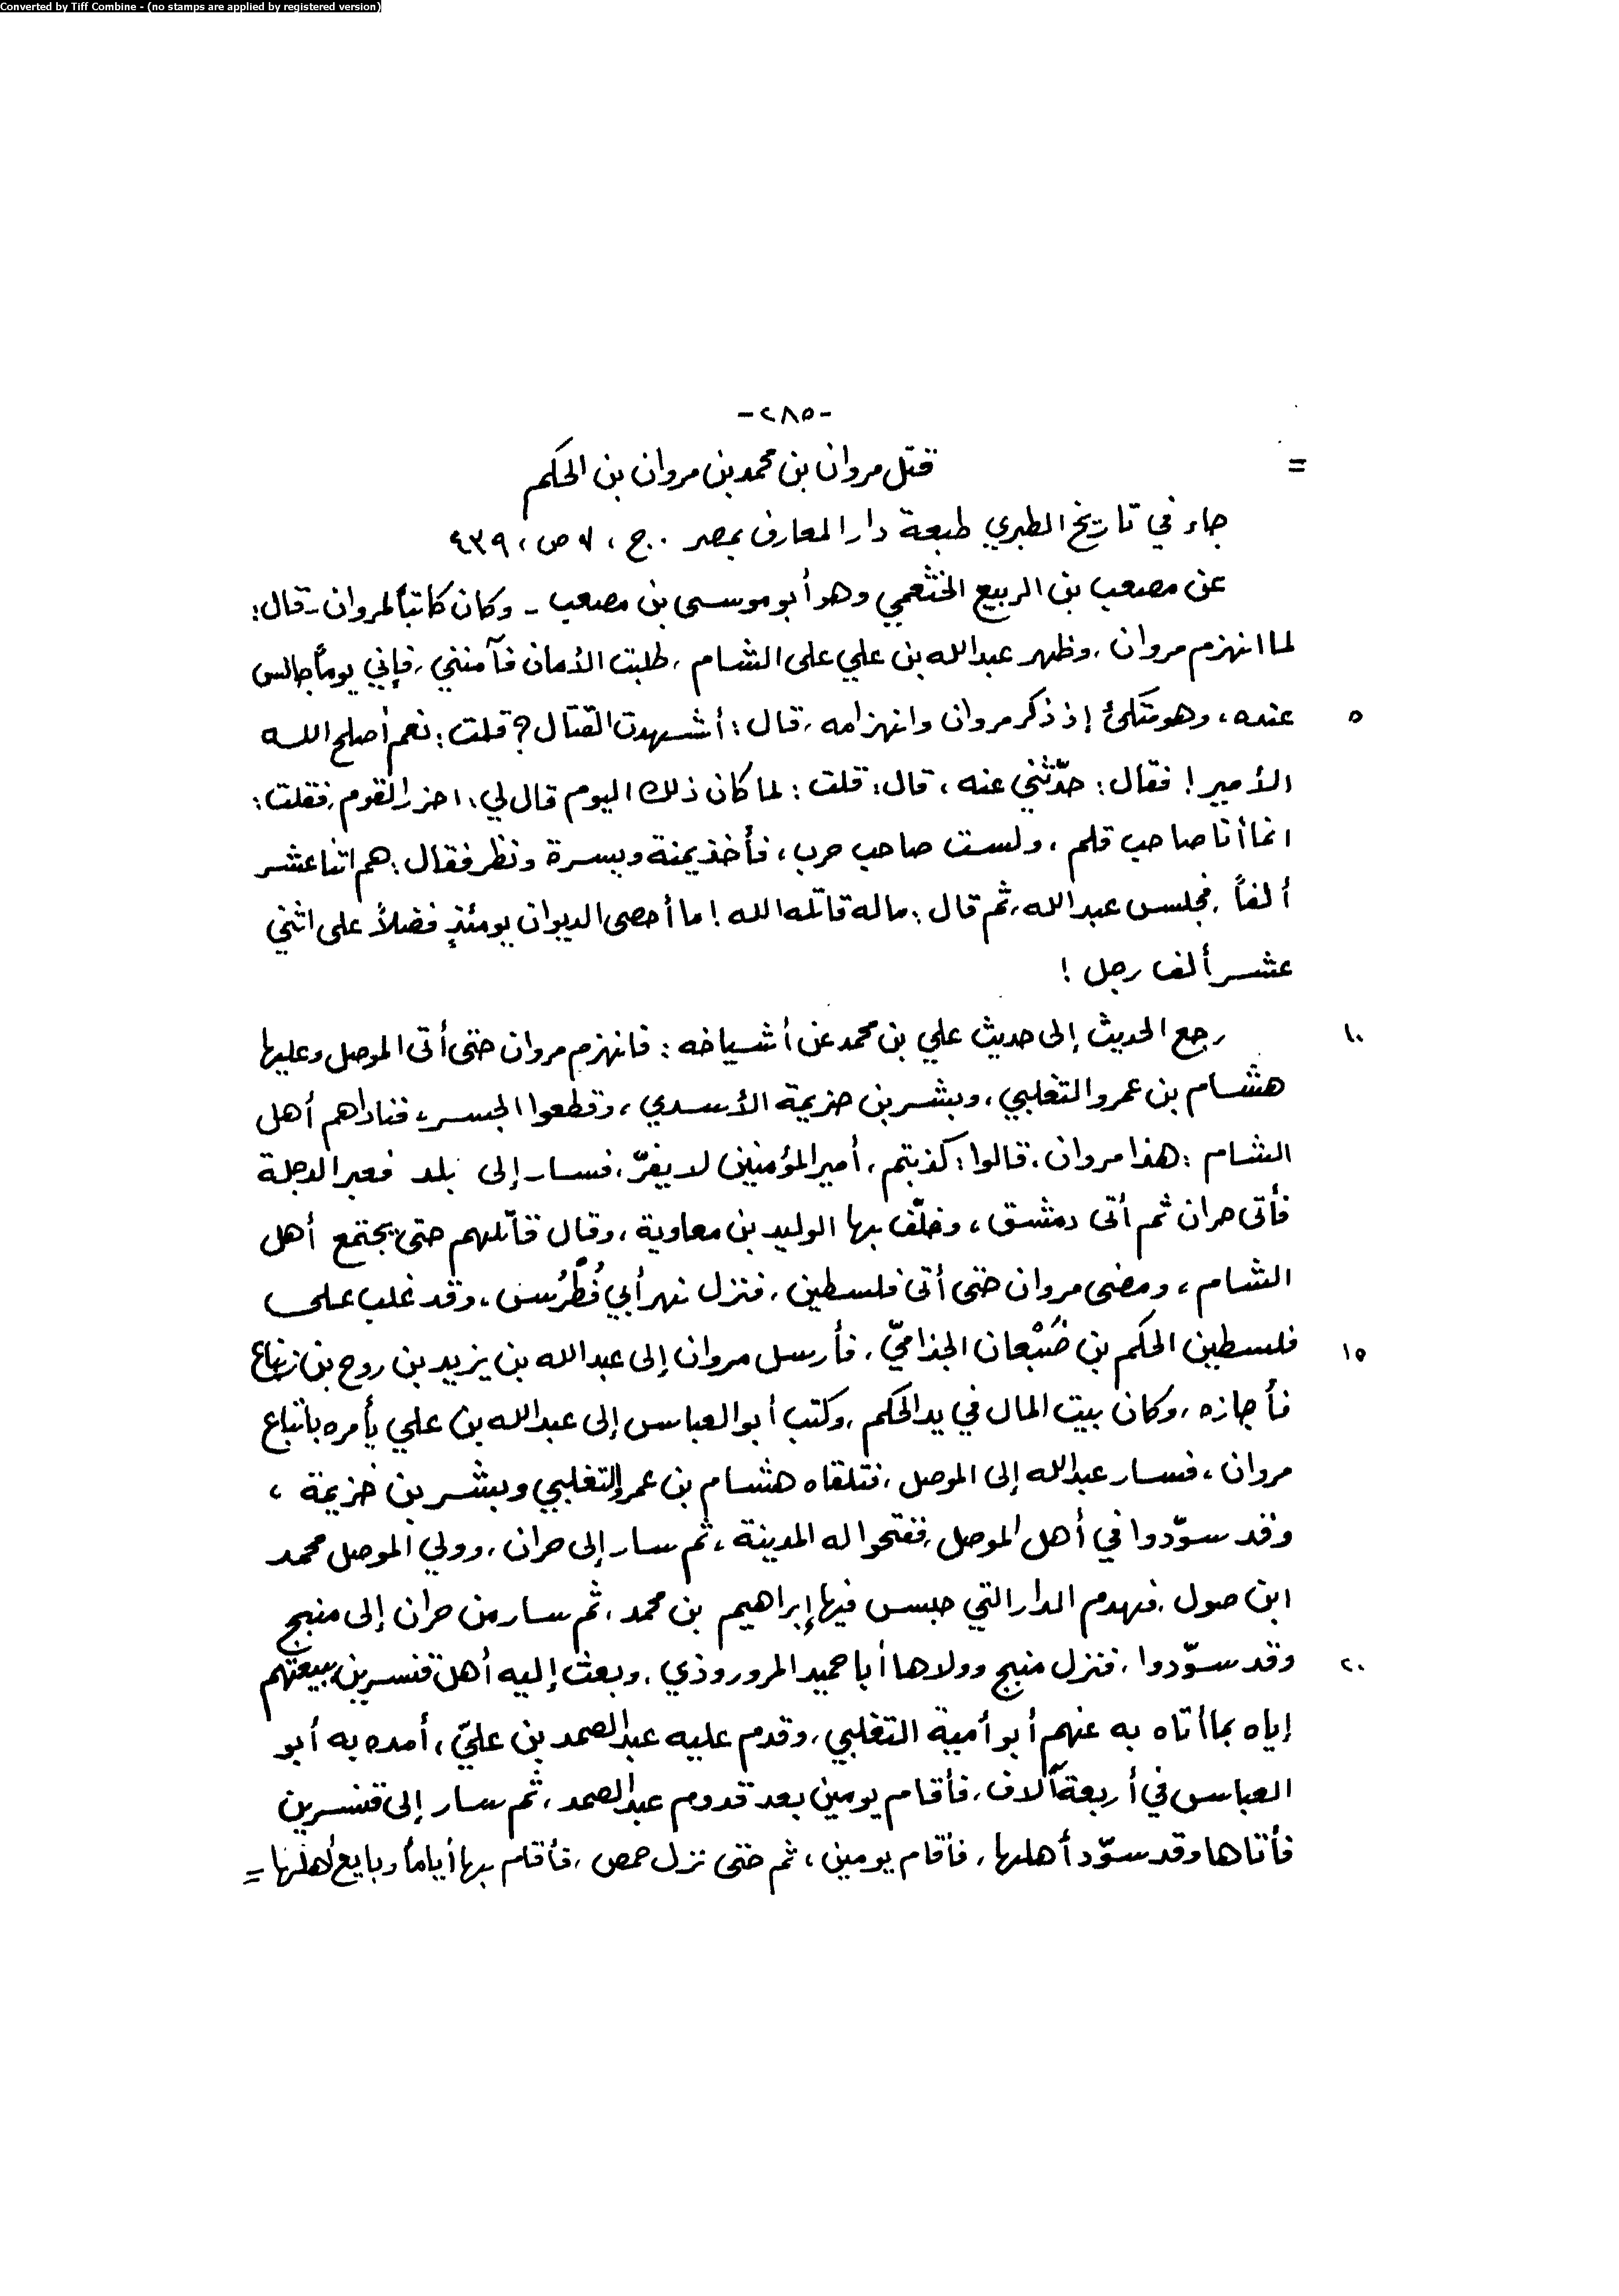 Converted by Tiff Combine - (no stamps are applied by registered version)
-٢٨٥-
= قتل مروان بن محمد بن مروان بن الحكم
جاء في تاريخ الطبري طبعة دار المعارف بمصر . ج ، ٧ ص ، ٤٣٩
عن مصعب بن الربيع الخثعمي وهو أبو موسى بن مصعب - وكان كاتباً لمروان - قال :
لما انهزم مروان ، وظهر عبد الله بن علي على الشام ، طلبت الأمان فآمنني ، فإني يوماً جالس
٥ عنده ، وهو متكئ إذ ذكر مروان وانهزامه ، قال : أشهدت القتال ؟ قلت : نعم أصلح الله
الأمير ! فقال : حدّثني عنه ، قال : قلت : لما كان ذلك اليوم قال لي : احزر القوم ، فقلت :
انما أنا صاحب قلم ، ولست صاحب حرب ، فأخذ يمنة ويسرة ونظر فقال : هم اثنا عشر
ألفاً ، فجلس عبد الله ، ثم قال : ماله قاتله الله ! ما أحصى الديوان يومئذٍ فضلاً على اثني
عشر ألف رجل !
١٠ رجع الحديث إلى حديث علي بن محمد عن أشياخه : فانهزم مروان حتى أتى الموصل وعليها
هشام بن عمرو التغلبي ، وبشر بن خزيمة الأسدي ، وقطعوا الجسر ، فناداهم أهل
الشام : هذا مروان . قالوا : كذبتم ، أمير المؤمنين لا يفرّ ، فسار إلى بلد فعبر الدجلة
فأتى حران ثم أتى دمشق ، وخلّف بها الوليد بن معاوية ، وقال قاتلهم حتى يجتمع أهل
الشام ، ومضى مروان حتى أتى فلسطين ، فنزل نهر أبي فُطْرُس ، وقد غلب على
١٥ فلسطين الحكم بن ضَبْعان الجذاميّ ، فأرسل مروان إلى عبد الله بن يزيد بن روح بن زنباع
فأجازه ، وكان بيت المال في يد الحكم ، وكتب أبو العباس إلى عبد الله بن علي يأمره باتباع
مروان ، فسار عبد الله إلى الموصل ، فتلقاه هشام بن عمرو التغلبي وبشر بن خزيمة ،
وقد سوّدوا في أهل الموصل ، ففتحوا له المدينة ، ثم سار إلى حران ، وولي الموصل محمد
ابن صول ، فهدم الدار التي حبس فيها إبراهيم بن محمد ، ثم سار من حران إلى منبج
٢٠ وقد سوّدوا ، فنزل منبج وولاها أبا حميد المروروذي ، وبعث إليه أهل قنسرين ببيعتهم
إياه بما أتاه به عنهم أبو أمية التغلبي ، وقدم عليه عبد الصمد بن عليّ ، أمده به أبو
العباس في أربعة آلاف ، فأقام يومين بعد قدوم عبد الصمد ، ثم سار إلى قنسرين
فأتاها وقد سوّد أهلها ، فأقام يومين ، ثم حتى نزل حمص ، فأقام بها أياماً وبايع أهلها =